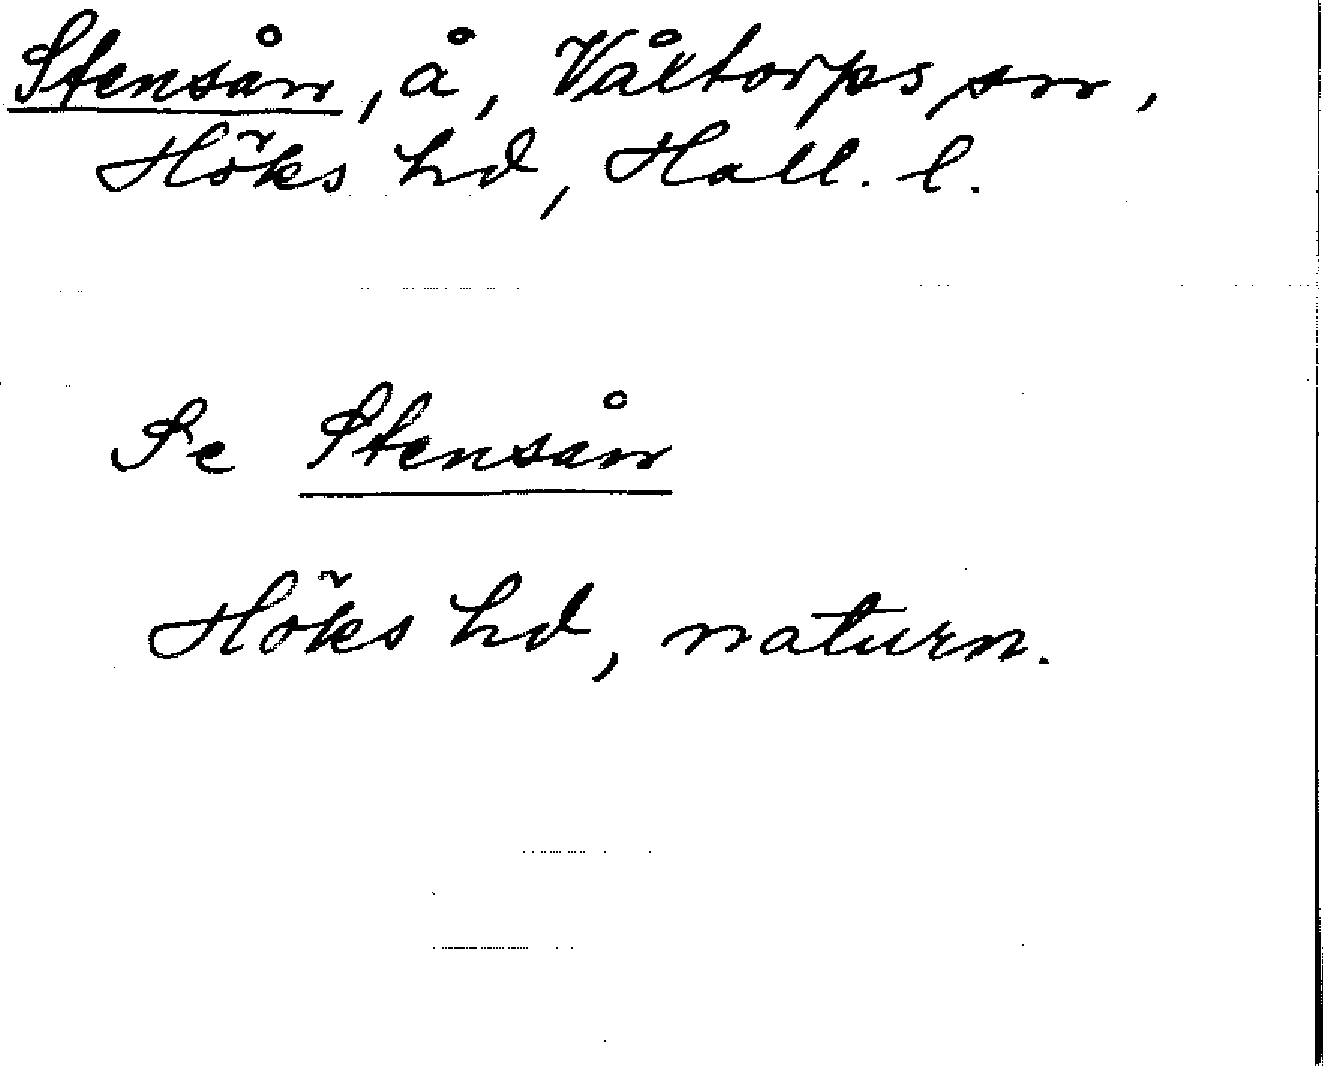 Stensån, å, Våxtorps sn,
Höks hd, Hall. l.
Se Stensån
Höks hd, naturn.